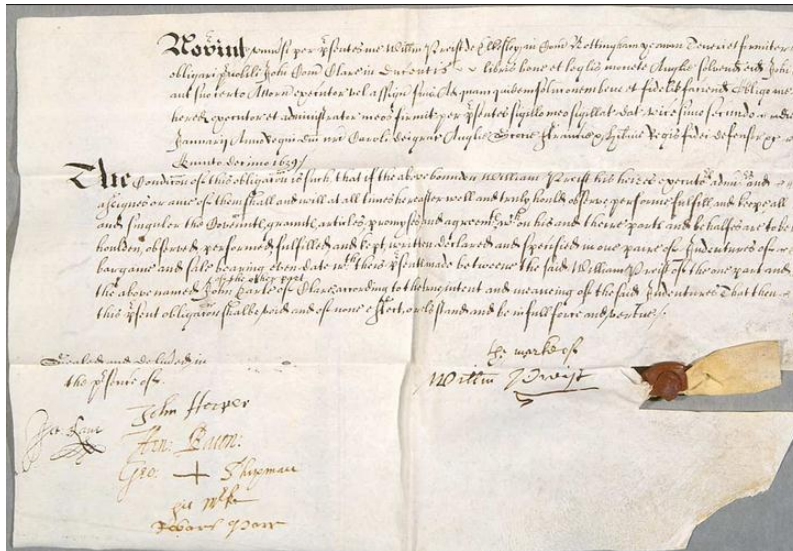 Novint universi per presentes me Willm Preist de Ellesley in Com Nottingham yeoman Teneri et firmiter
obligari prnobili John Com Clare in Ducentis libris bone et legalis monete Anglie solvend eid John
aut suo certo Attorn executor vel assign suis Ad quam quidem solucionem bene et fidelit faciend Obligo me
hered executor et administrator meos firmiter per psentes sigillo meo sigillat Dat vicesimo secundo die
Januarij Anno regni dni nri Caroli dei gratie Anglie Scocie Francie & Hibnie Regis fidei defensor &c
Quinto decimo 1639
The Condicon of this obligacon is such that if the above bounden William Preist his heires executrs admrs and
assignes or any of them shall and will at all times hereafter well and truly hould observe performe fulfill and keepe all
and singuler the Covennts graunts articles promyses and agreemts wch on his and theire parts and behalfes are to be
houlden observed performed fulfilled and kept written declared and specified in one paire of Indentures of
bargaine and sale bearing even date wth theis psents made betweene the said William Preist of the one part and
of the other part
the above named John Earle of Clare according to the true intent and meaning of the said Indentures That then
this psent obligacon shalbe void and of none effect, or els stand and be in full force and vertue
the marke of
Willm Preist
Sealed and delivred in
the psence of
John Hooper
Hen: Bacon:
Geo: + Shipman
his mke